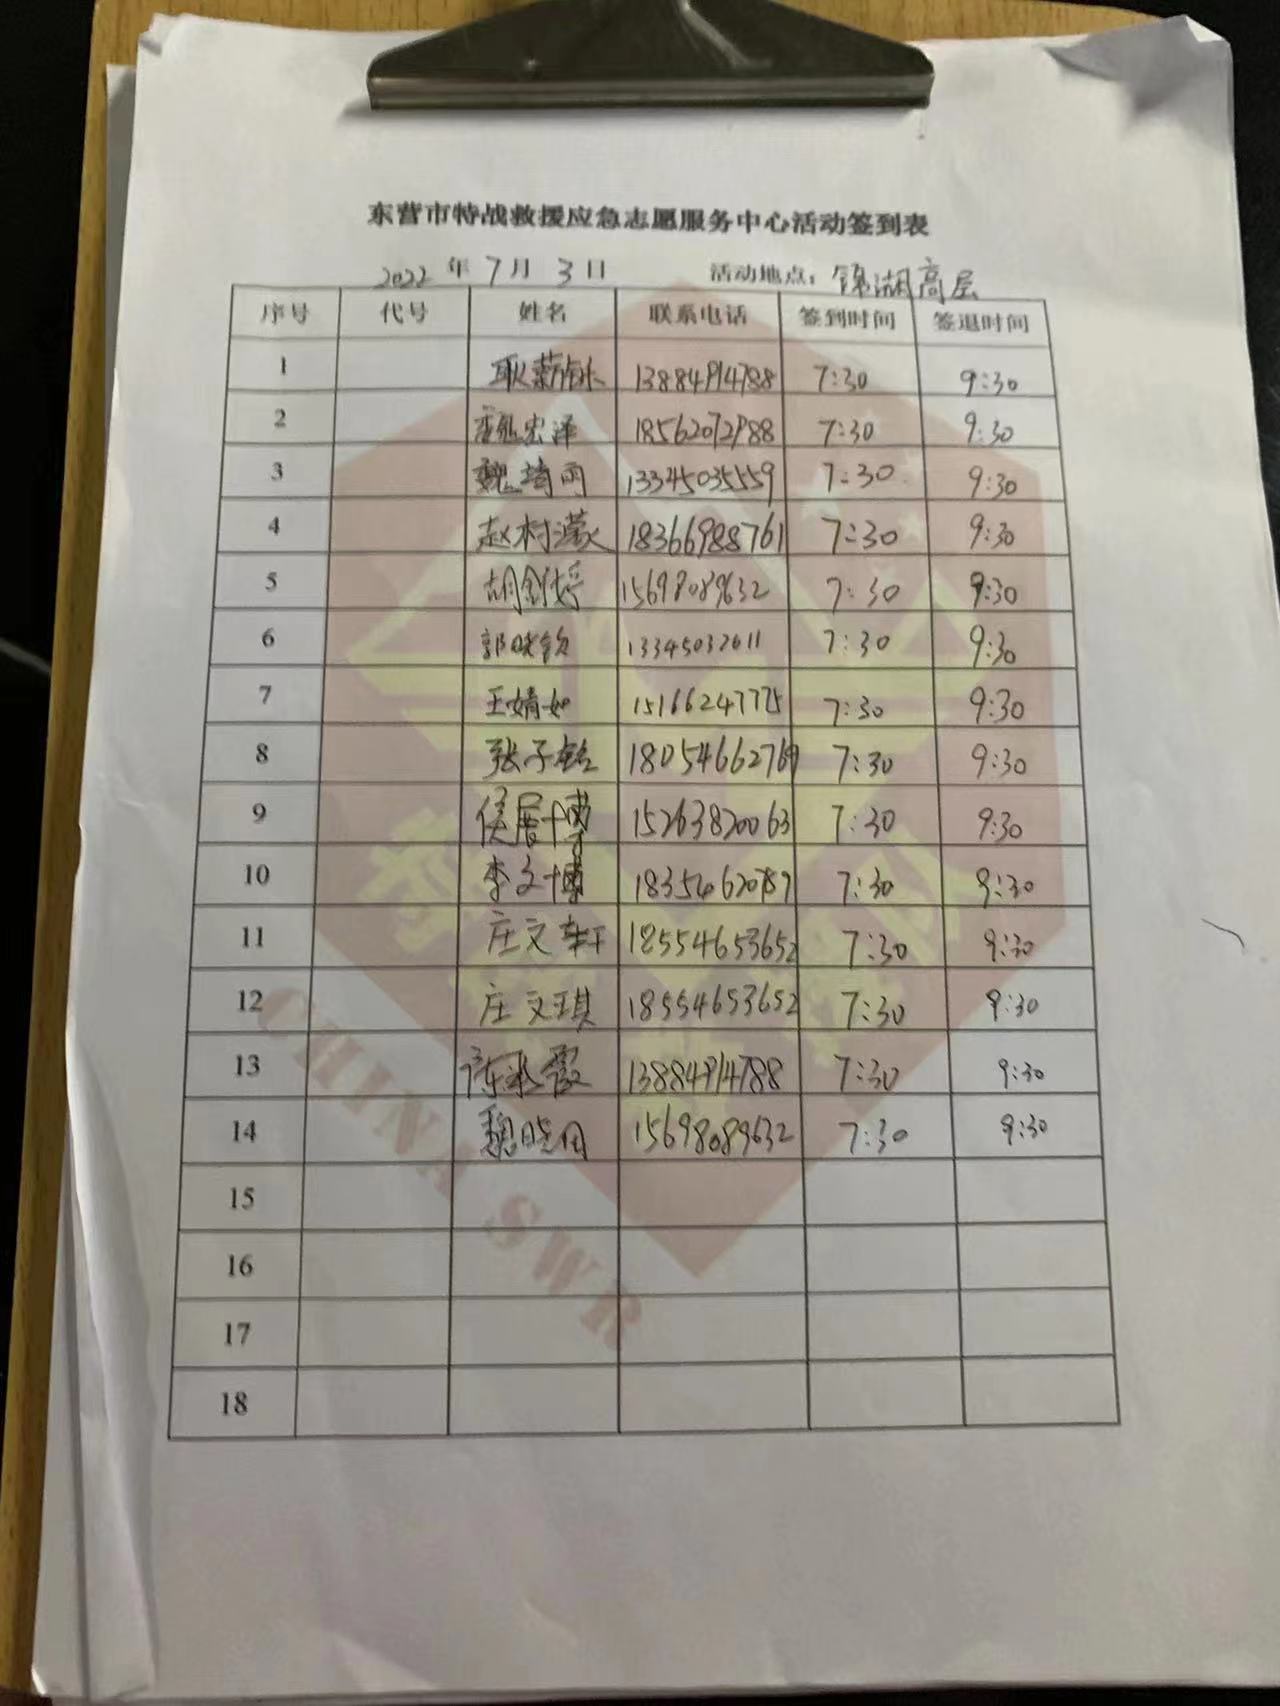 东营市特战救援应急志愿服务中心活动签到表
2022 年 7 月 3 日 活动地点：锦湖高层
序号 代号 姓名 联系电话 签到时间 签退时间
1 13884914788 7:30 9:30
2 宏泽 18562072988 7:30 9:30
3 魏琦雨 13345035559 7:30 9:30
4 赵村濛 18366988761 7:30 9:30
5 胡剑婷 15698089632 7:30 9:30
6 郭晓钦 13345032011 7:30 9:30
7 王婧如 15166247775 7:30 9:30
8 张子铭 18054662769 7:30 9:30
9 侯博 15263820063 7:30 9:30
10 李文博 18354620789 7:30 9:30
11 庄文轩 18554653652 7:30 9:30
12 庄文琪 18554653652 7:30 9:30
13 陈霞 13884914788 7:30 9:30
14 魏晓田 15698089632 7:30 9:30
15
16
17
18
CHINA SWR